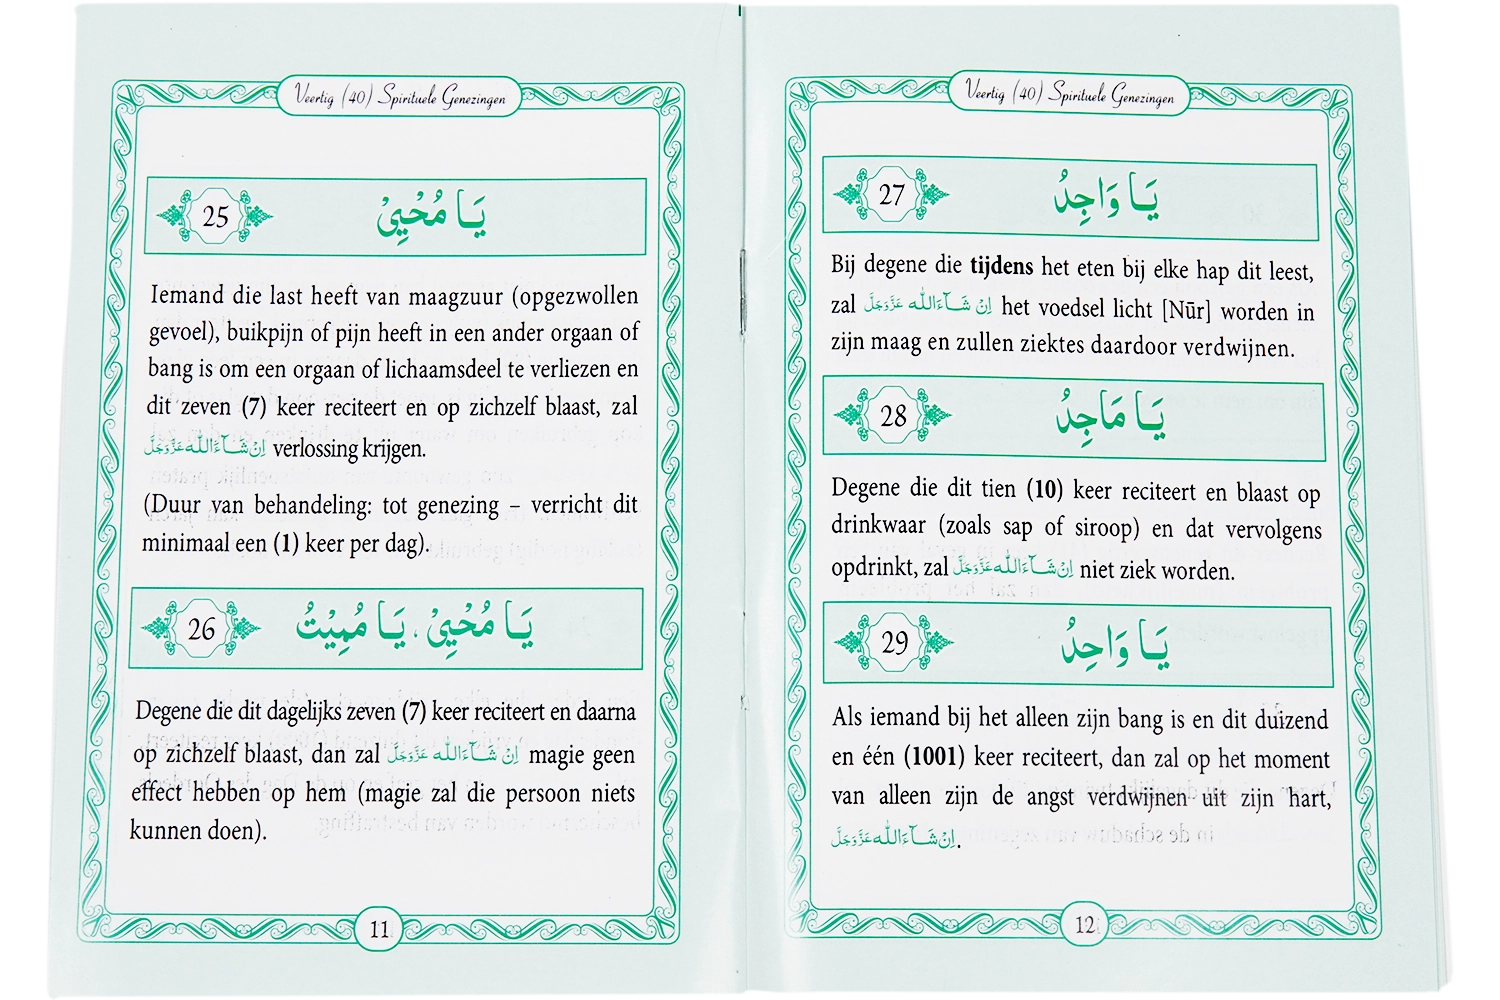 Veertig (40) Spirituele Genezingen
25 يَا مُحْيِيْ
Iemand die last heeft van maagzuur (opgezwollen
gevoel), buikpijn of pijn heeft in een ander orgaan of
bang is om een orgaan of lichaamsdeel te verliezen en
dit zeven (7) keer reciteert en op zichzelf blaast, zal
اِنْ شَآءَاللّٰه عَزَّوَجَلَّ verlossing krijgen.
(Duur van behandeling: tot genezing – verricht dit
minimaal een (1) keer per dag).
26 يَا مُحْيِيْ، يَا مُمِيْتُ
Degene die dit dagelijks zeven (7) keer reciteert en daarna
op zichzelf blaast, dan zal اِنْ شَآءَاللّٰه عَزَّوَجَلَّ magie geen
effect hebben op hem (magie zal die persoon niets
kunnen doen).
11
Veertig (40) Spirituele Genezingen
27 يَا وَاجِدُ
Bij degene die tijdens het eten bij elke hap dit leest,
zal اِنْ شَآءَاللّٰه عَزَّوَجَلَّ het voedsel licht [Nūr] worden in
zijn maag en zullen ziektes daardoor verdwijnen.
28 يَا مَاجِدُ
Degene die dit tien (10) keer reciteert en blaast op
drinkwaar (zoals sap of siroop) en dat vervolgens
opdrinkt, zal اِنْ شَآءَاللّٰه عَزَّوَجَلَّ niet ziek worden.
29 يَا وَاحِدُ
Als iemand bij het alleen zijn bang is en dit duizend
en één (1001) keer reciteert, dan zal op het moment
van alleen zijn de angst verdwijnen uit zijn hart,
اِنْ شَآءَاللّٰه عَزَّوَجَلَّ.
12